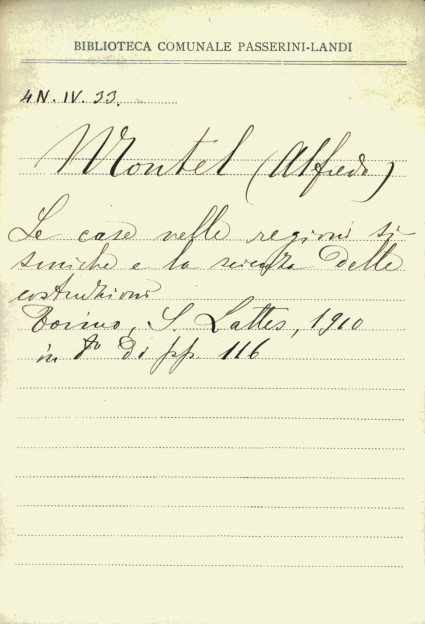 BIBLIOTECA COMUNALE PASSERINI-LANDI
4N. IV. 33.
Montel (Alfredo)
Le case nelle regioni si-
smiche e la scienza delle
costruzioni
Torino, S. Lattes, 1910
in 8º di pp. 116